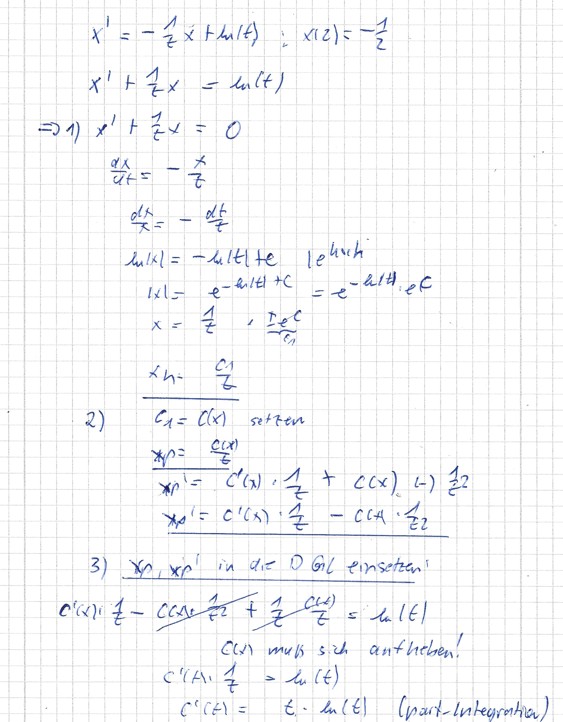 x' = - 1/t x + ln(t) ; x(2) = - 1/2
x' + 1/t x = ln(t)
=> 1) x' + 1/t x = 0
dx/dt = - x/t
dx/x = - dt/t
ln|x| = -ln|t| + c | e hoch
|x| = e^(-ln|t| + C) = e^(-ln|t|) · e^C
x = 1/t · ±e^C
C1
xh = C1/t
2) C1 = C(x) setzen
xp = C(x)/t
xp' = C'(x) · 1/t + C(x) (-) 1/t2
xp' = C'(x) · 1/t - C(x) · 1/t2
3) xp, xp' in die DGL einsetzen:
C'(x) · 1/t - C(x) · 1/t2 + 1/t · C(x)/t = ln(t)
C(x) muß sich aufheben!
C'(t) · 1/t = ln(t)
C'(t) = t · ln(t) (part. Integration)